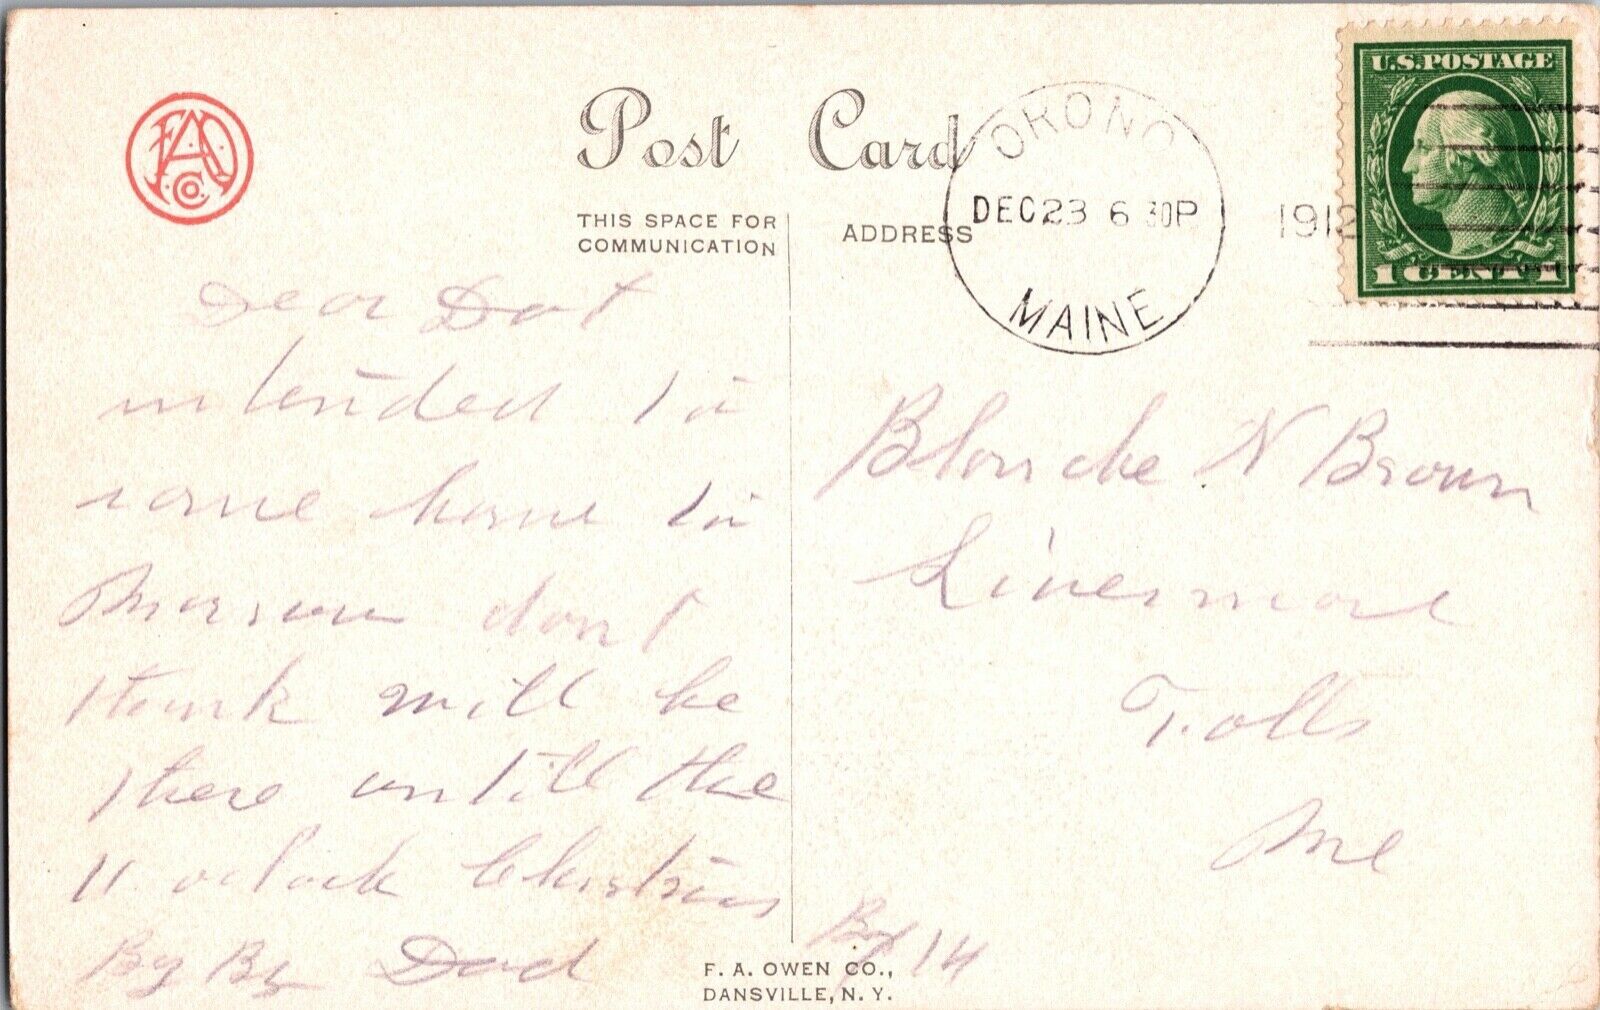 U.S. POSTAGE
1 CENT 1
ORONO
DEC 23 6 30P
1912
MAINE
FAO Co.
Post Card
THIS SPACE FOR
COMMUNICATION
ADDRESS
Dear Dot
intended to
come home to
Morrow dont
think will be
there untill the
11 oclock Christmas
By By Dad
Blanche N Brown
Livermore
Falls
Me
Box 14
F. A. OWEN CO.,
DANSVILLE, N. Y.